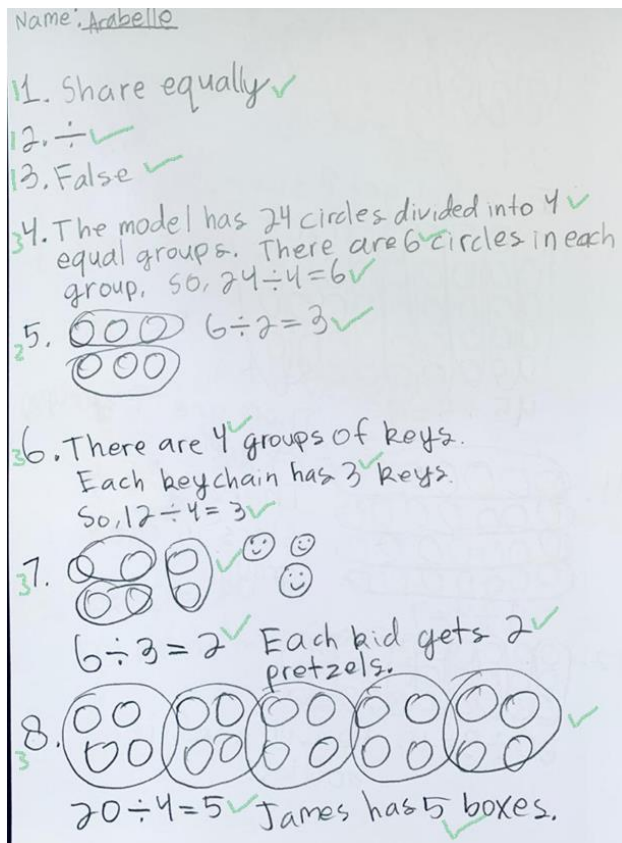 Name: Arabelle
1 1. Share equally ✓
1 2. ÷ ✓
1 3. False ✓
3 4. The model has 24 circles divided into 4 ✓
equal groups. There are 6 ✓ circles in each
group. So, 24÷4=6 ✓
2 5. 6÷2=3 ✓
3 6. There are 4 ✓ groups of keys.
Each keychain has 3 ✓ keys.
So, 12÷4=3 ✓
3 7. ✓
6÷3=2 ✓ Each kid gets 2 ✓
pretzels.
3 8. ✓
20÷4=5 ✓ James has 5 ✓ boxes.